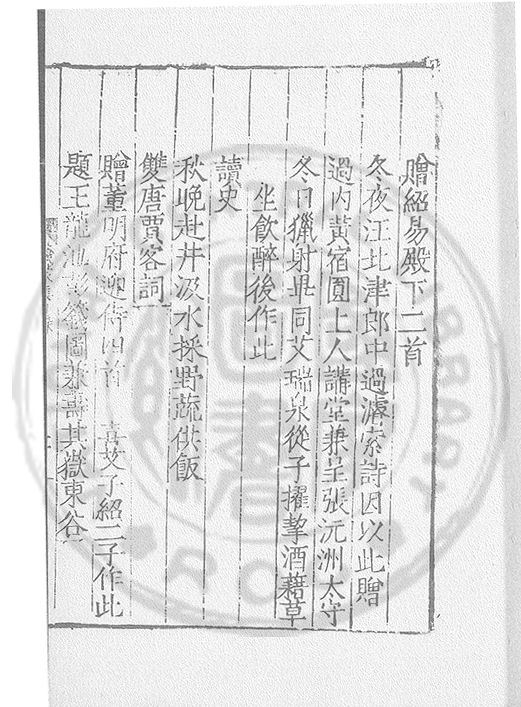 贈紹易殿下二首
冬夜江北津郎中過濬索詩因以此贈
過內黃宿圓上人講堂兼呈張沅洲太守
冬日獵射畢同艾瑞泉從子擢摯酒藉草
坐飲醉後作此
讀史
秋晚赴井汲水採野蔬供飯
雙唐賈客詞
贈董明府迎侍四首 喜艾子紹二子作此
題王龍池彭籛圖兼壽其嶽東谷